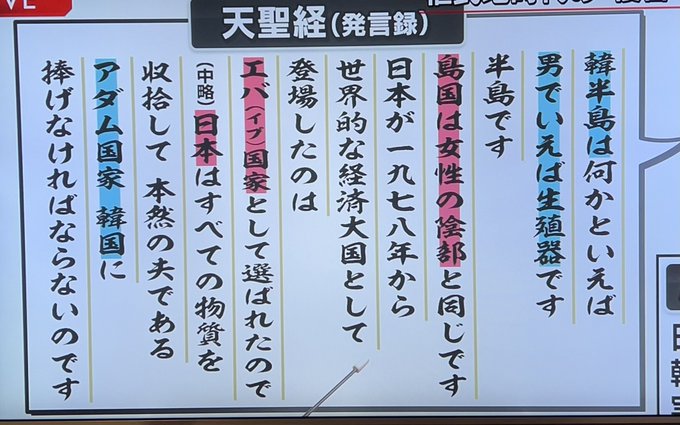 VE
天聖経(発言録)
韓半島は何かといえば
男でいえば生殖器です
半島です
島国は女性の陰部と同じです
日本が一九七八年から
世界的な経済大国として
登場したのは
エバ(イブ)国家として選ばれたので
(中略)日本はすべての物質を
収拾して 本然の夫である
アダム国家 韓国に
捧げなければならないのです